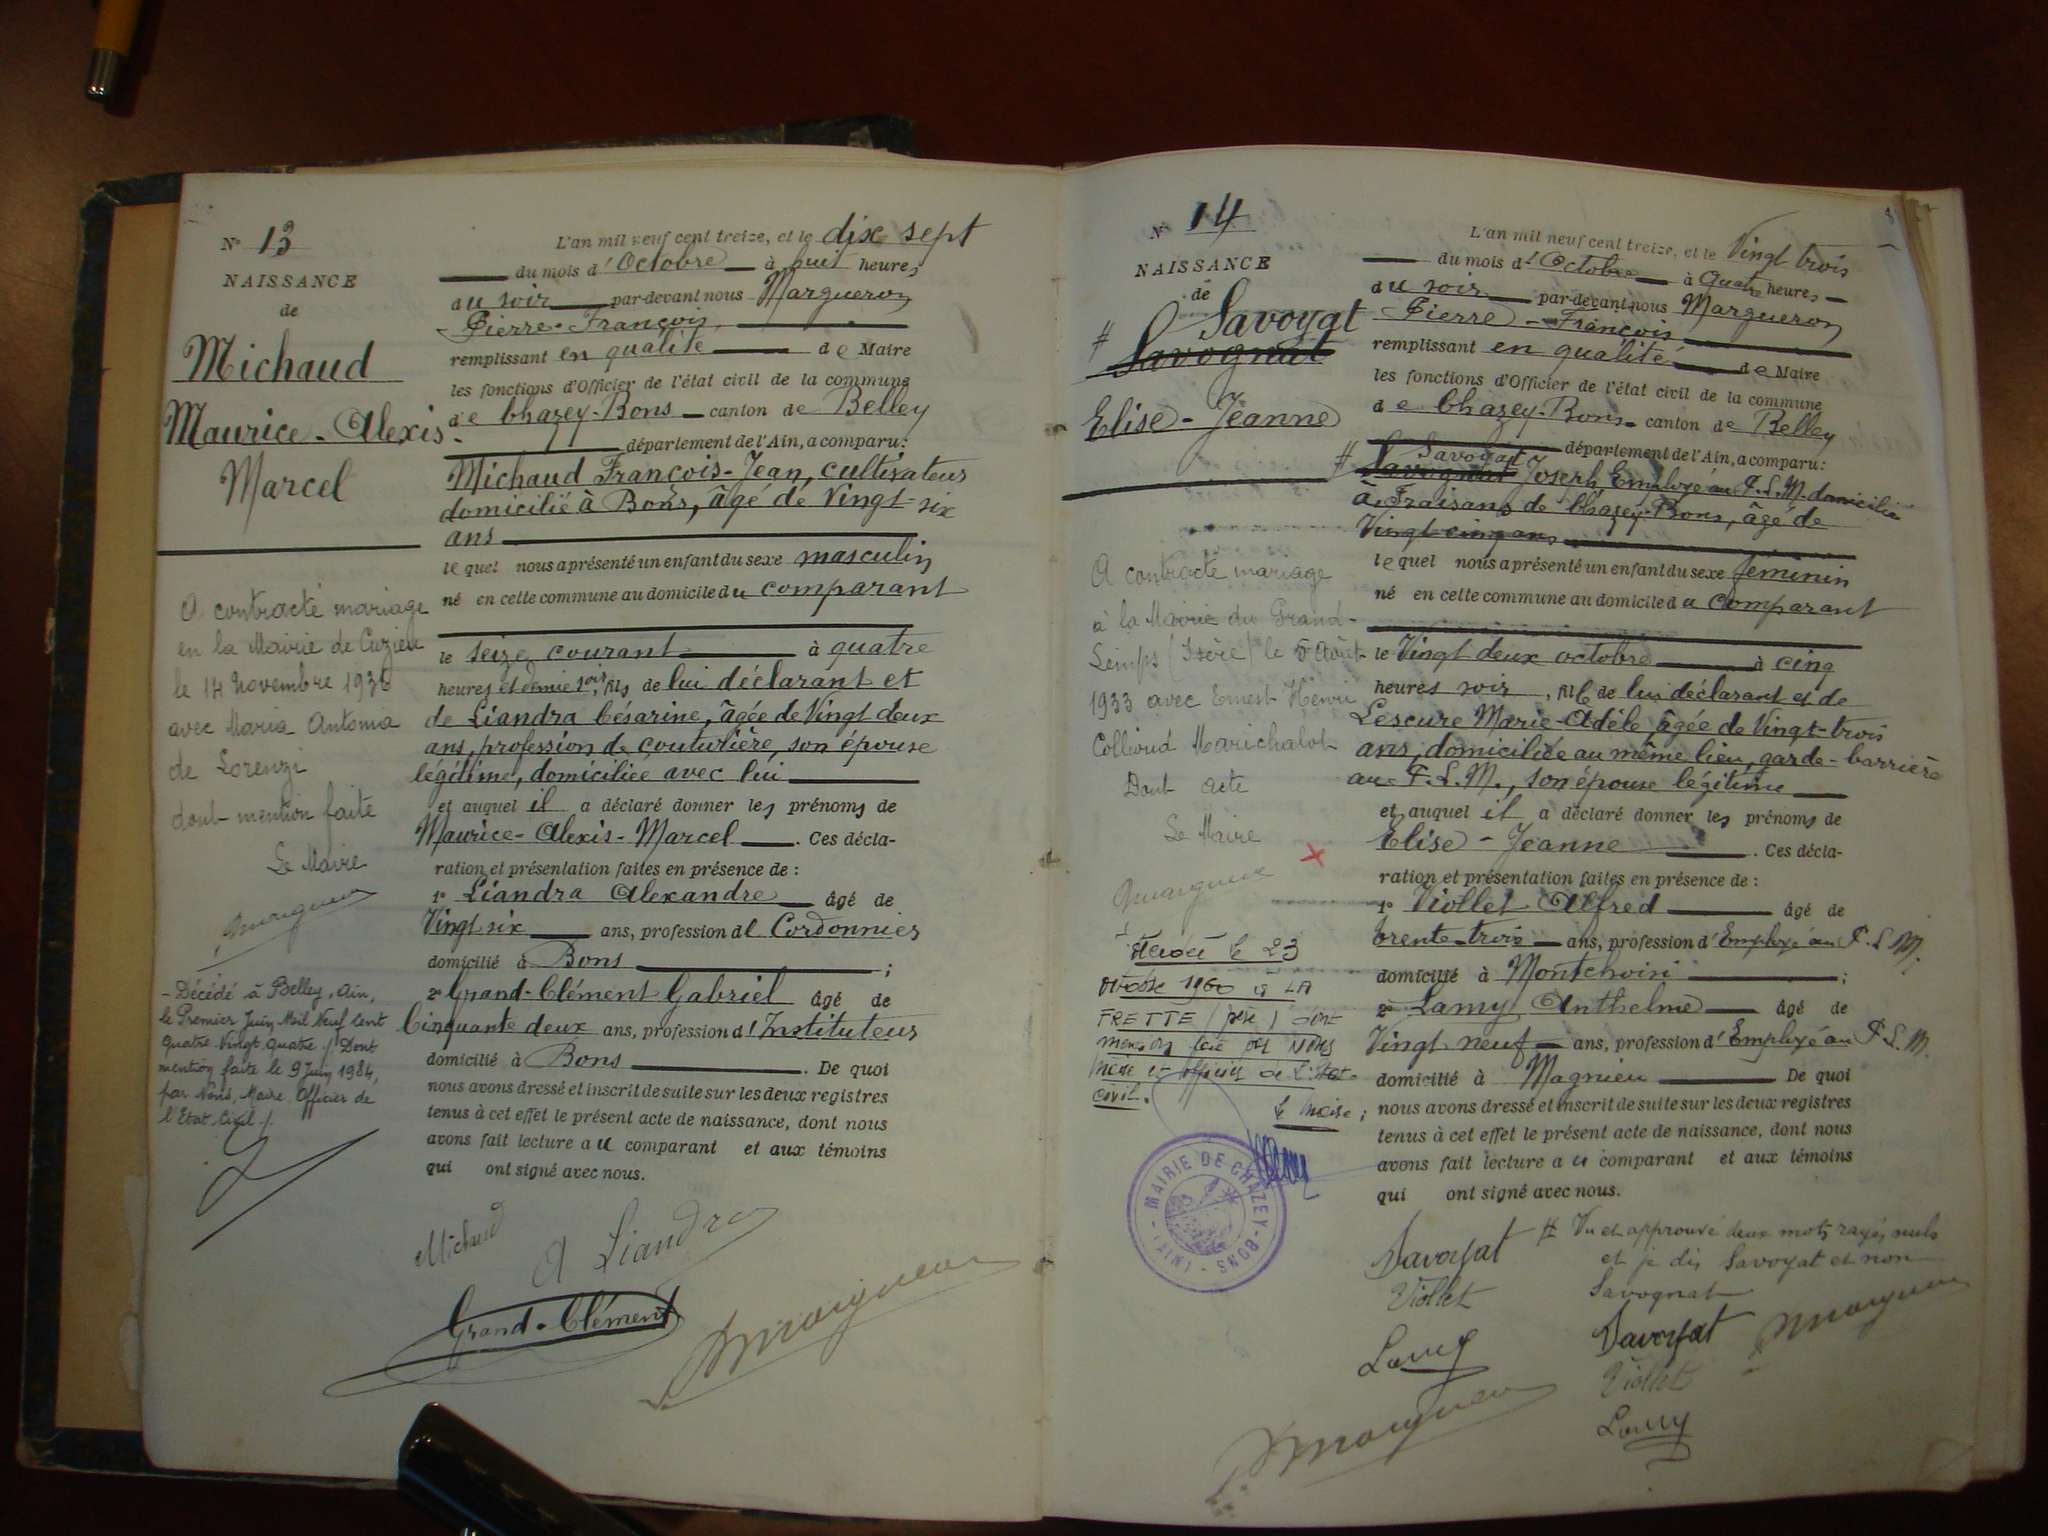 N° 13
NAISSANCE
de
Michaud
Maurice-Alexis-
Marcel
A contracté mariage
en la Mairie de Cuzieu
le 14 novembre 193
avec Maria Antonia
de Lorenzi
dont mention faite
Le Maire
- Décédé à Belley, Ain,
le Premier Juin Mil Neuf Cent
quatre Vingt quatre ./. Dont
mention faite le 9 Juin 1984,
par Nous, Maire Officier de
l'Etat-Civil ./.
L'an mil neuf cent treize, et le dix sept
du mois d'Octobre à huit heures
du soir par-devant nous Margueron
Pierre-François,
remplissant en qualité de Maire
les fonctions d'Officier de l'état civil de la commune
de Chazey-Bons canton de Belley
département de l'Ain, a comparu:
Michaud François-Jean, cultivateur
domicilié à Bons, âgé de Vingt-six
ans
lequel nous a présenté un enfant du sexe masculin
né en cette commune au domicile du comparant
le seize courant à quatre
heures et demie soir, fils de lui déclarant et
de Liandra Césarine, âgée de Vingt deux
ans, profession de couturière, son épouse
légitime, domiciliée avec lui
et auquel il a déclaré donner les prénoms de
Maurice-Alexis-Marcel. Ces décla-
ration et présentation faites en présence de :
1° Liandra Alexandre âgé de
Vingt six ans, profession de Cordonnier
domicilié à Bons ;
2° Grand-Clément Gabriel âgé de
Cinquante deux ans, profession d'Instituteur
domicilié à Bons. De quoi
nous avons dressé et inscrit de suite sur les deux registres
tenus à cet effet le présent acte de naissance, dont nous
avons fait lecture au comparant et aux témoins
qui ont signé avec nous.
Michaud
A Liandra
Grand-Clément
Margueron
N° 14
NAISSANCE
de
Savoyat
# Savognat
Elise-Jeanne
A contracté mariage
à la Mairie du Grand-
Lemps (Isère) le 5 Août
1933 avec Ernest Henri
Collioud Marichalot
Dont acte
Le Maire
Décédée le 23
octobre 1960 à LA
FRETTE (Isère) dont
mention faite par NOUS
Maire et officier de l'Etat-
civil.
Le Maire ;
MAIRIE DE CHAZEY-BONS - (AIN) -
L'an mil neuf cent treize, et le Vingt trois
du mois d'Octobre à quatre heures
du soir par-devant nous Margueron
Pierre-François
remplissant en qualité de Maire
les fonctions d'Officier de l'état civil de la commune
de Chazey-Bons canton de Belley
département de l'Ain, a comparu:
Savoyat
# Savognat Joseph Employé au P.L.M. domicilié
à Fraisans de Chazey-Bons, âgé de
Vingt cinq ans
lequel nous a présenté un enfant du sexe féminin
né en cette commune au domicile du comparant
le Vingt deux octobre à cinq
heures soir, fille de lui déclarant et de
Lescure Marie-Adèle, âgée de Vingt-trois
ans, domiciliée au même lieu, garde-barrière
au P.L.M., son épouse légitime
et auquel il a déclaré donner les prénoms de
Elise-Jeanne. Ces décla-
ration et présentation faites en présence de :
1° Viollet Alfred âgé de
trente-trois ans, profession d'Employé au P.L.M.
domicilié à Montchoisi ;
2° Lamy Anthelme âgé de
Vingt neuf ans, profession d'Employé au P.L.M.
domicilié à Magnieu De quoi
nous avons dressé et inscrit de suite sur les deux registres
tenus à cet effet le présent acte de naissance, dont nous
avons fait lecture au comparant et aux témoins
qui ont signé avec nous.
# Vu et approuvé deux mots rayés nuls
et je dis Savoyat et non
Savognat
Savoyat
Viollet
Lamy
Margueron
Savoyat
Viollet
Lamy
Margueron